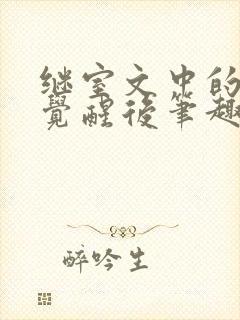 继室文中的
觉醒后笔趣
醉吟生